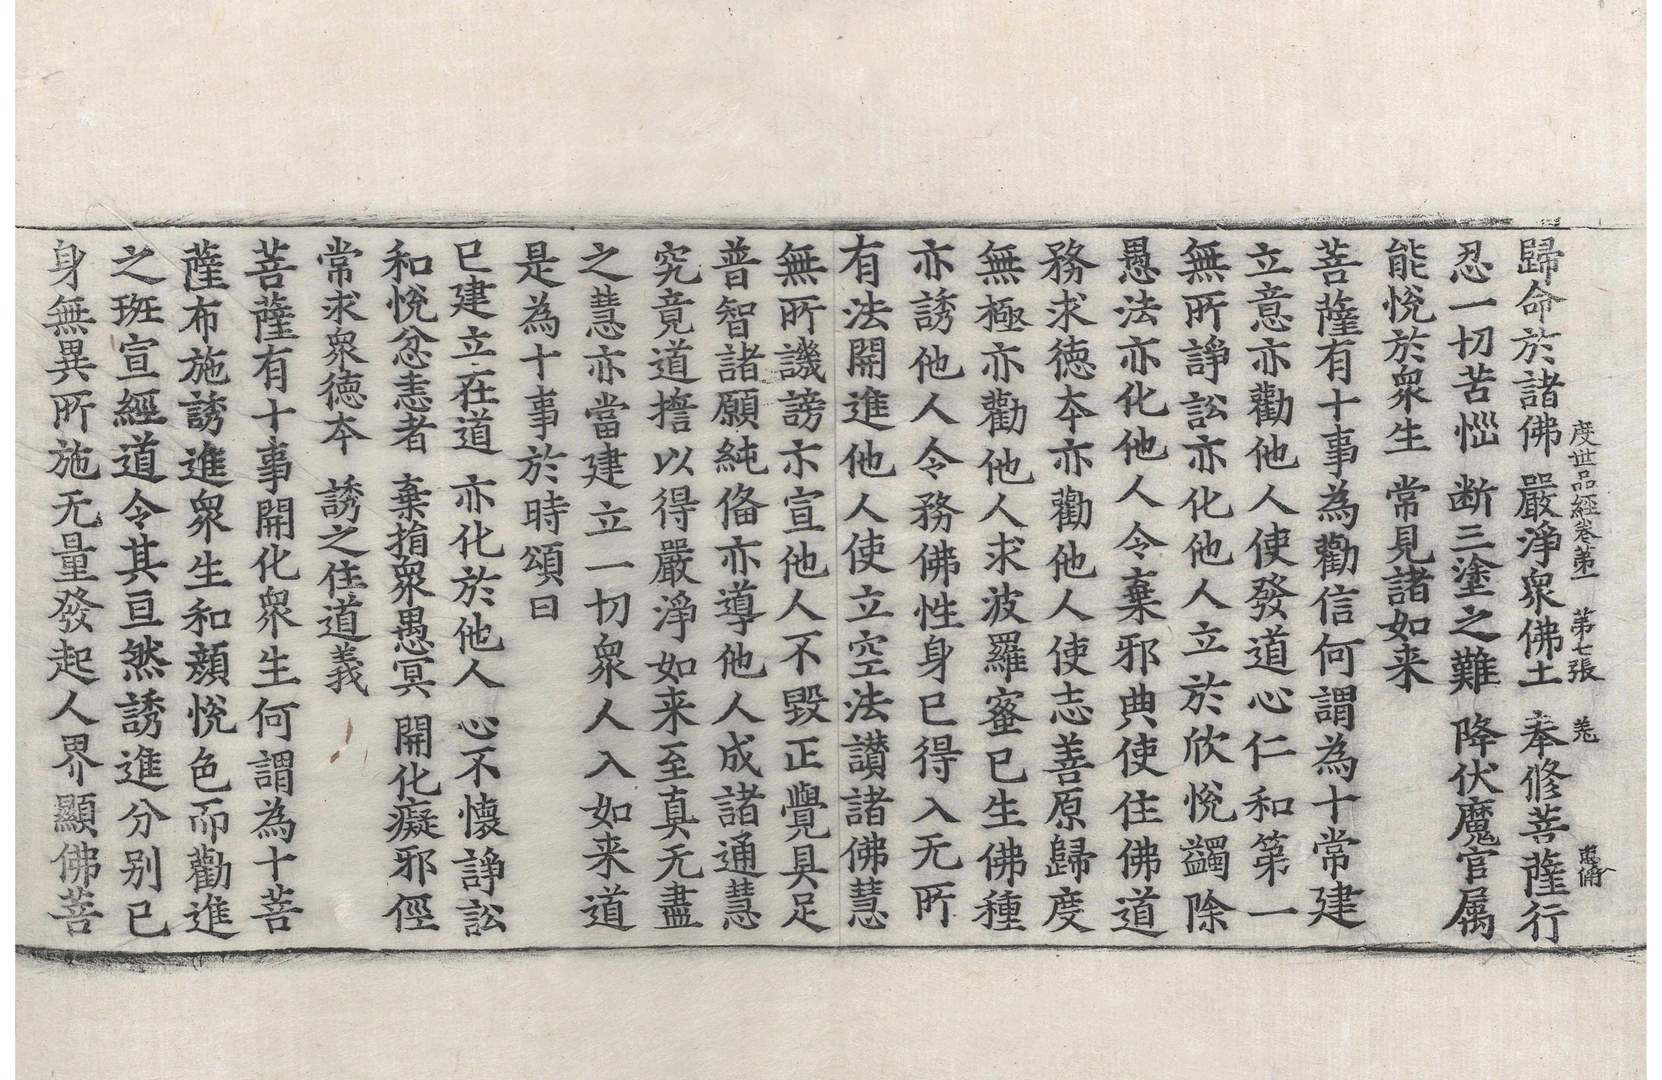 度世品經卷第一　第七張　羌
歸命於諸佛　嚴淨衆佛土　奉修菩薩行
忍一切苦惱　断三塗之難　降伏魔官属
能悅於衆生　常見諸如来
菩薩有十事為勸信何謂為十常建
立意亦勸他人使發道心仁和第一
無所諍訟亦化他人立於欣悅蠲除
愚法亦化他人令棄邪典使住佛道
務求徳夲亦勸他人使志善原歸度
無極亦勸他人求波羅蜜已生佛種
亦誘他人令務佛性身已得入无所
有法開進他人使立空法讃諸佛慧
無所譏謗亦宣他人不毀正覺具足
普智諸願純俻亦導他人成諸通慧
究竟道擔以得嚴淨如来至真无盡
之慧亦當建立一切衆人入如来道
是為十事於時頌曰
已建立在道　亦化於他人　心不懷諍訟
和悅忿恚者　棄捐衆愚冥　開化癡邪俓
常求衆徳夲　誘之住道義
菩薩有十事開化衆生何謂為十菩
薩布施誘進衆生和顏悅色而勸進
之班宣經道令其亘然誘進分别已
身無異所施无量發起人界顯佛菩